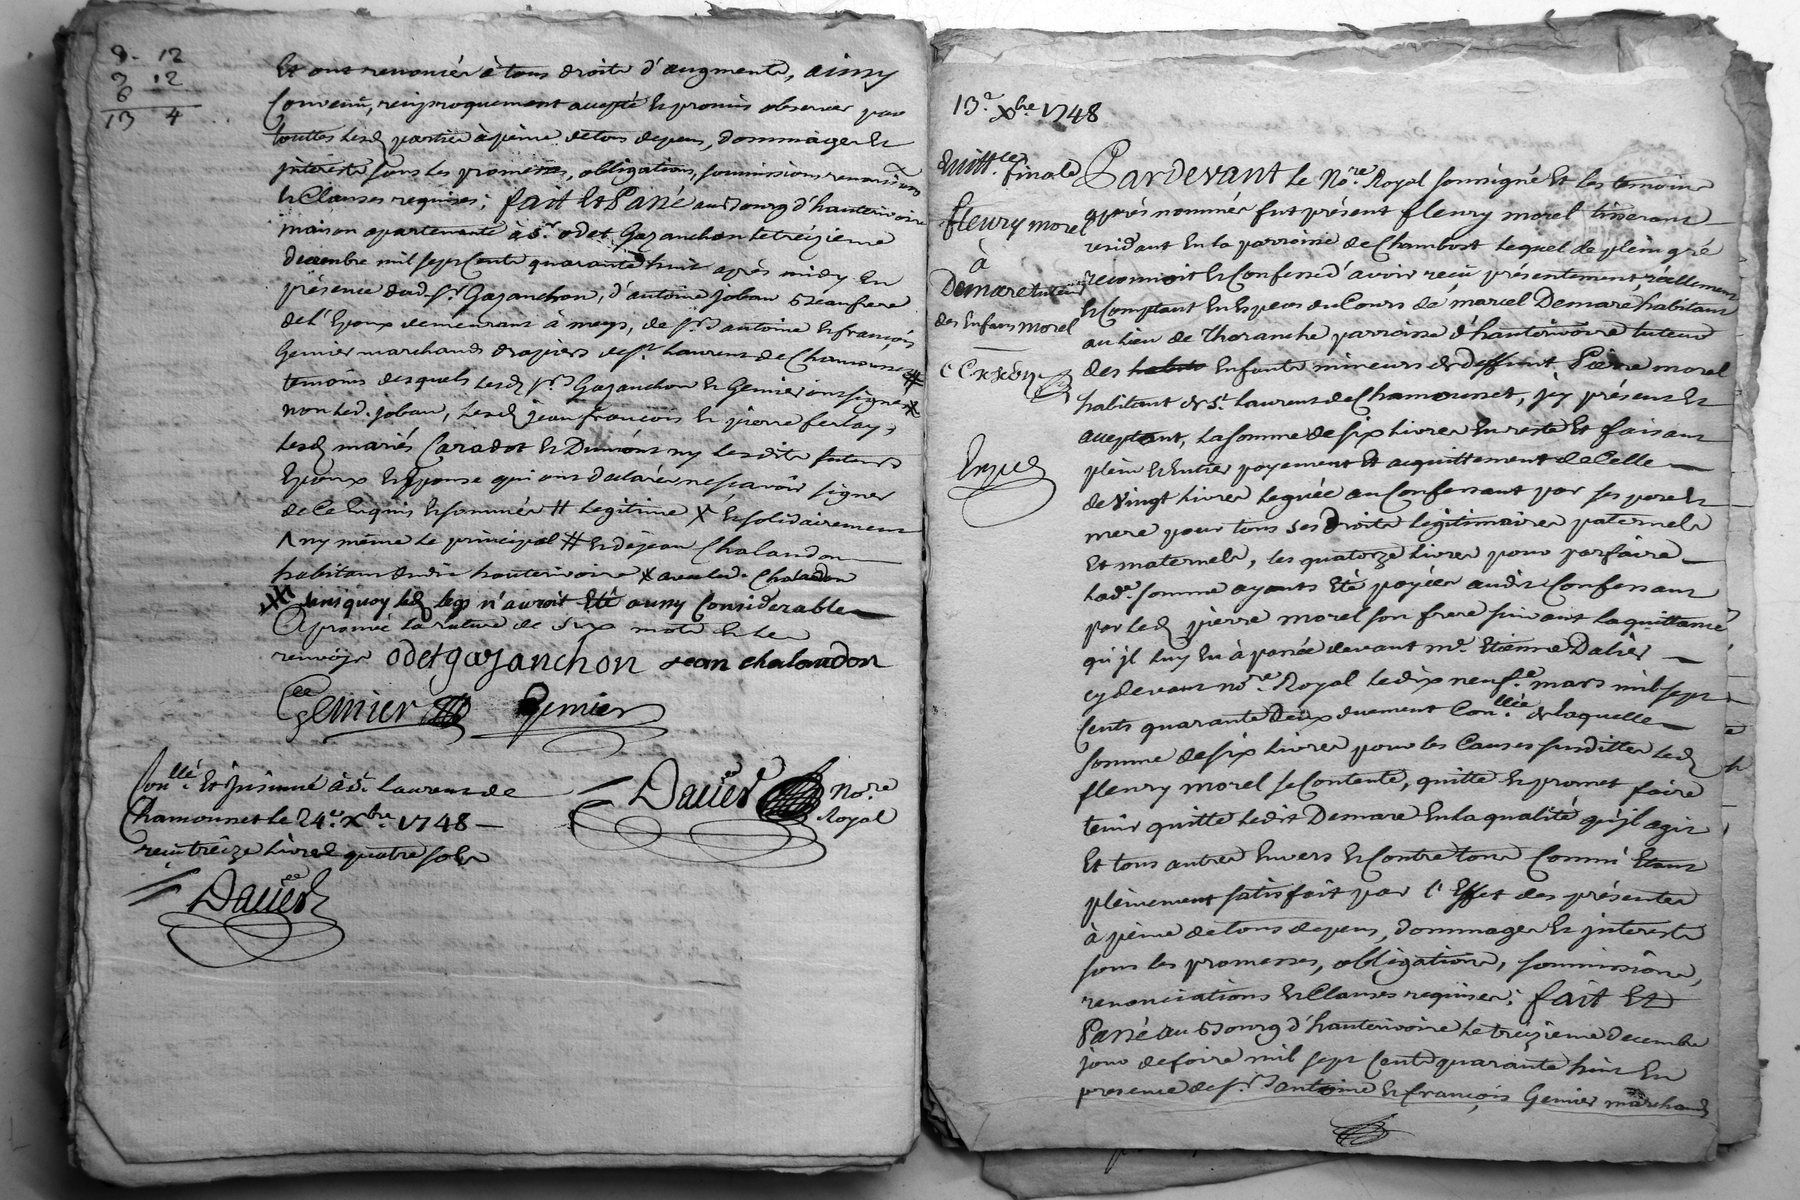 9. 12
3 12
6
13 4
Et ont renoncér à tous droits d'augments, ainsy
Convenu, reciproquement accepté et promis observer par
touttes lesd. parties à peine de tous depens, dommages et
interests sous les promesses, obligations, soumissions renonciãons
et Clauses requises; fait Et Passé au Bourg d'hauterivoire
maison apartenante à Sr. odet Gazanchon le treizieme
decembre mil sept Cents quarante huit après midy en
présence dud. Sr. Gazanchon, d'antoine joban beaufrere
de l'Epoux demeurant à meys, de Srs. antoine et françois
Genier marchands drapiers de St. Laurent de Chamousset #
temoins desquels lesd. Srs. Gazanchon et Genier ont signé X
non led. joban, lesd. jean françois et pierre ferlay,
lesd. mariés Caradot et Dumont ny lesdits futurs
Epoux et Epouse qui ont declarér ne scavoir signer
de Ce Enquis et sommér # legitime X et solidairement
Λ ny même le principal # et de jean Chalandon
habitant dudit hauterivoire X avec led. Chalandon
sans quoy led. legs n'auroit Eté aussy Considerable
Aprouvé la rature de six mots et les
renvoys odet gazanchon jean chalandon
Genier Genier
Conllé. Et jnsinué à St. Laurent de
Chamousset le 24e. xbre. 1748
reçu treize livres quatre sols
Dalier Nore.
Royal
Dalier
13e. xbre 1748
quittce. finale
fleury morel
à
Demare tuteur
des Enfans morel
Expéd.
Pardevant le Nore. Royal soussigné Et les temoins
après nommér fut présent fleury morel tisserant
residant En la parroisse de Chambost lequel de plein gré
reconnoit et Confesse d'avoir reçu présentement, réellement
et Comptant En Especes du Cours de marcel Demare habitant
au lieu de Thoranche parroisse d'hauterivoire tuteur
des Enfants mineurs de deffunt Pierre morel
habitant de St. Laurent de Chamousset, jcy présent Et
acceptant, la somme de six livres En reste Et faisant
plein et Entier payement Et acquittement de Celle
de Vingt livres leguée au Confessant par ses pere et
mere pour tous ses Droits legitimaires paternels
Et maternels, les quatorze livres pour parfaire
lade. somme ayants Eté payées audit Confessant
par led. pierre morel son frere suivant la quittance
qu'jl luy En à passée devant me. Etienne Dalier
cy devant nore. Royal le dix neufe. mars mil sept
Cents quarante Deux duement Conllée. de laquelle
somme de six livres pour les Causes susdittes led.
fleury morel se Contente, quitte et promet faire
tenir quitte ledit Demare En la qualité qu'jl agit
Et tous autres Envers et Contre tous Comme Etant
pleinement satisfait par l'Effet des présentes
à peine de tous depens, dommages et jnterests
sous les promesses, obligations, soumissions,
renonciations et Clauses requises; fait Et
Passé au Bourg d'hauterivoire le treizieme decembre
jour de foire mil sept Cents quarante huit En
presence de Srs. antoine et françois Genier marchands